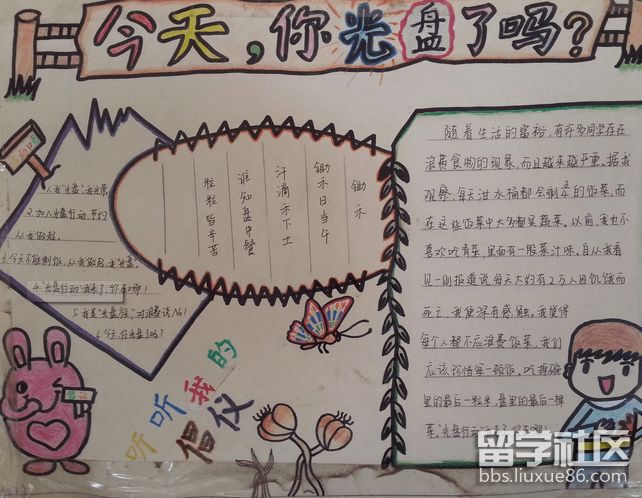 今天,你光盘了吗?
口号
1.我"光盘"我光荣
2.加入光盘行动,节约
从我做起.
3.今天不能剩饭,从我做起,我光盘.
4."光盘行动"我来了,你在哪!
5.我是"光盘族"对浪费说No!
6.今天你光盘了吗?
锄禾
锄禾日当午
汗滴禾下土
谁知盘中餐
粒粒皆辛苦
听听我的
倡仪
随着生活的富裕,有许多同学存在
浪费食物的现象,而且越来越严重,据我
观察,每天泔水桶都会剩不少的饭菜,而
在这些饭菜中大多都是蔬菜,以前,我也不
喜欢吃青菜,里面有一股菜汁味,自从我看
见一则报道说每天大约有2万人因饥饿而
死亡,我便深有感触,我觉得
每个人都不应浪费饭菜,我们
应该珍惜每一顿饭,吃掉碗
里的最后一粒米,盘里的最后一棵
菜,"光盘行动"
留学社区
bbs.liuxue86.com